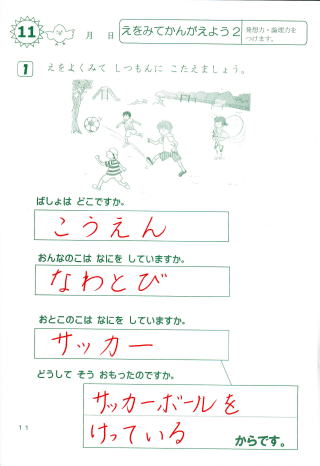 11
月 日
えをみてかんがえよう2
発想力・論理力を
つけます。
1 えをよくみて しつもんに こたえましょう。
ばしょは どこですか。
こうえん
おんなのこは なにを していますか。
なわとび
おとこのこは なにを していますか。
サッカー
どうして そう おもったのですか。
サッカーボールを
けっている
からです。
11